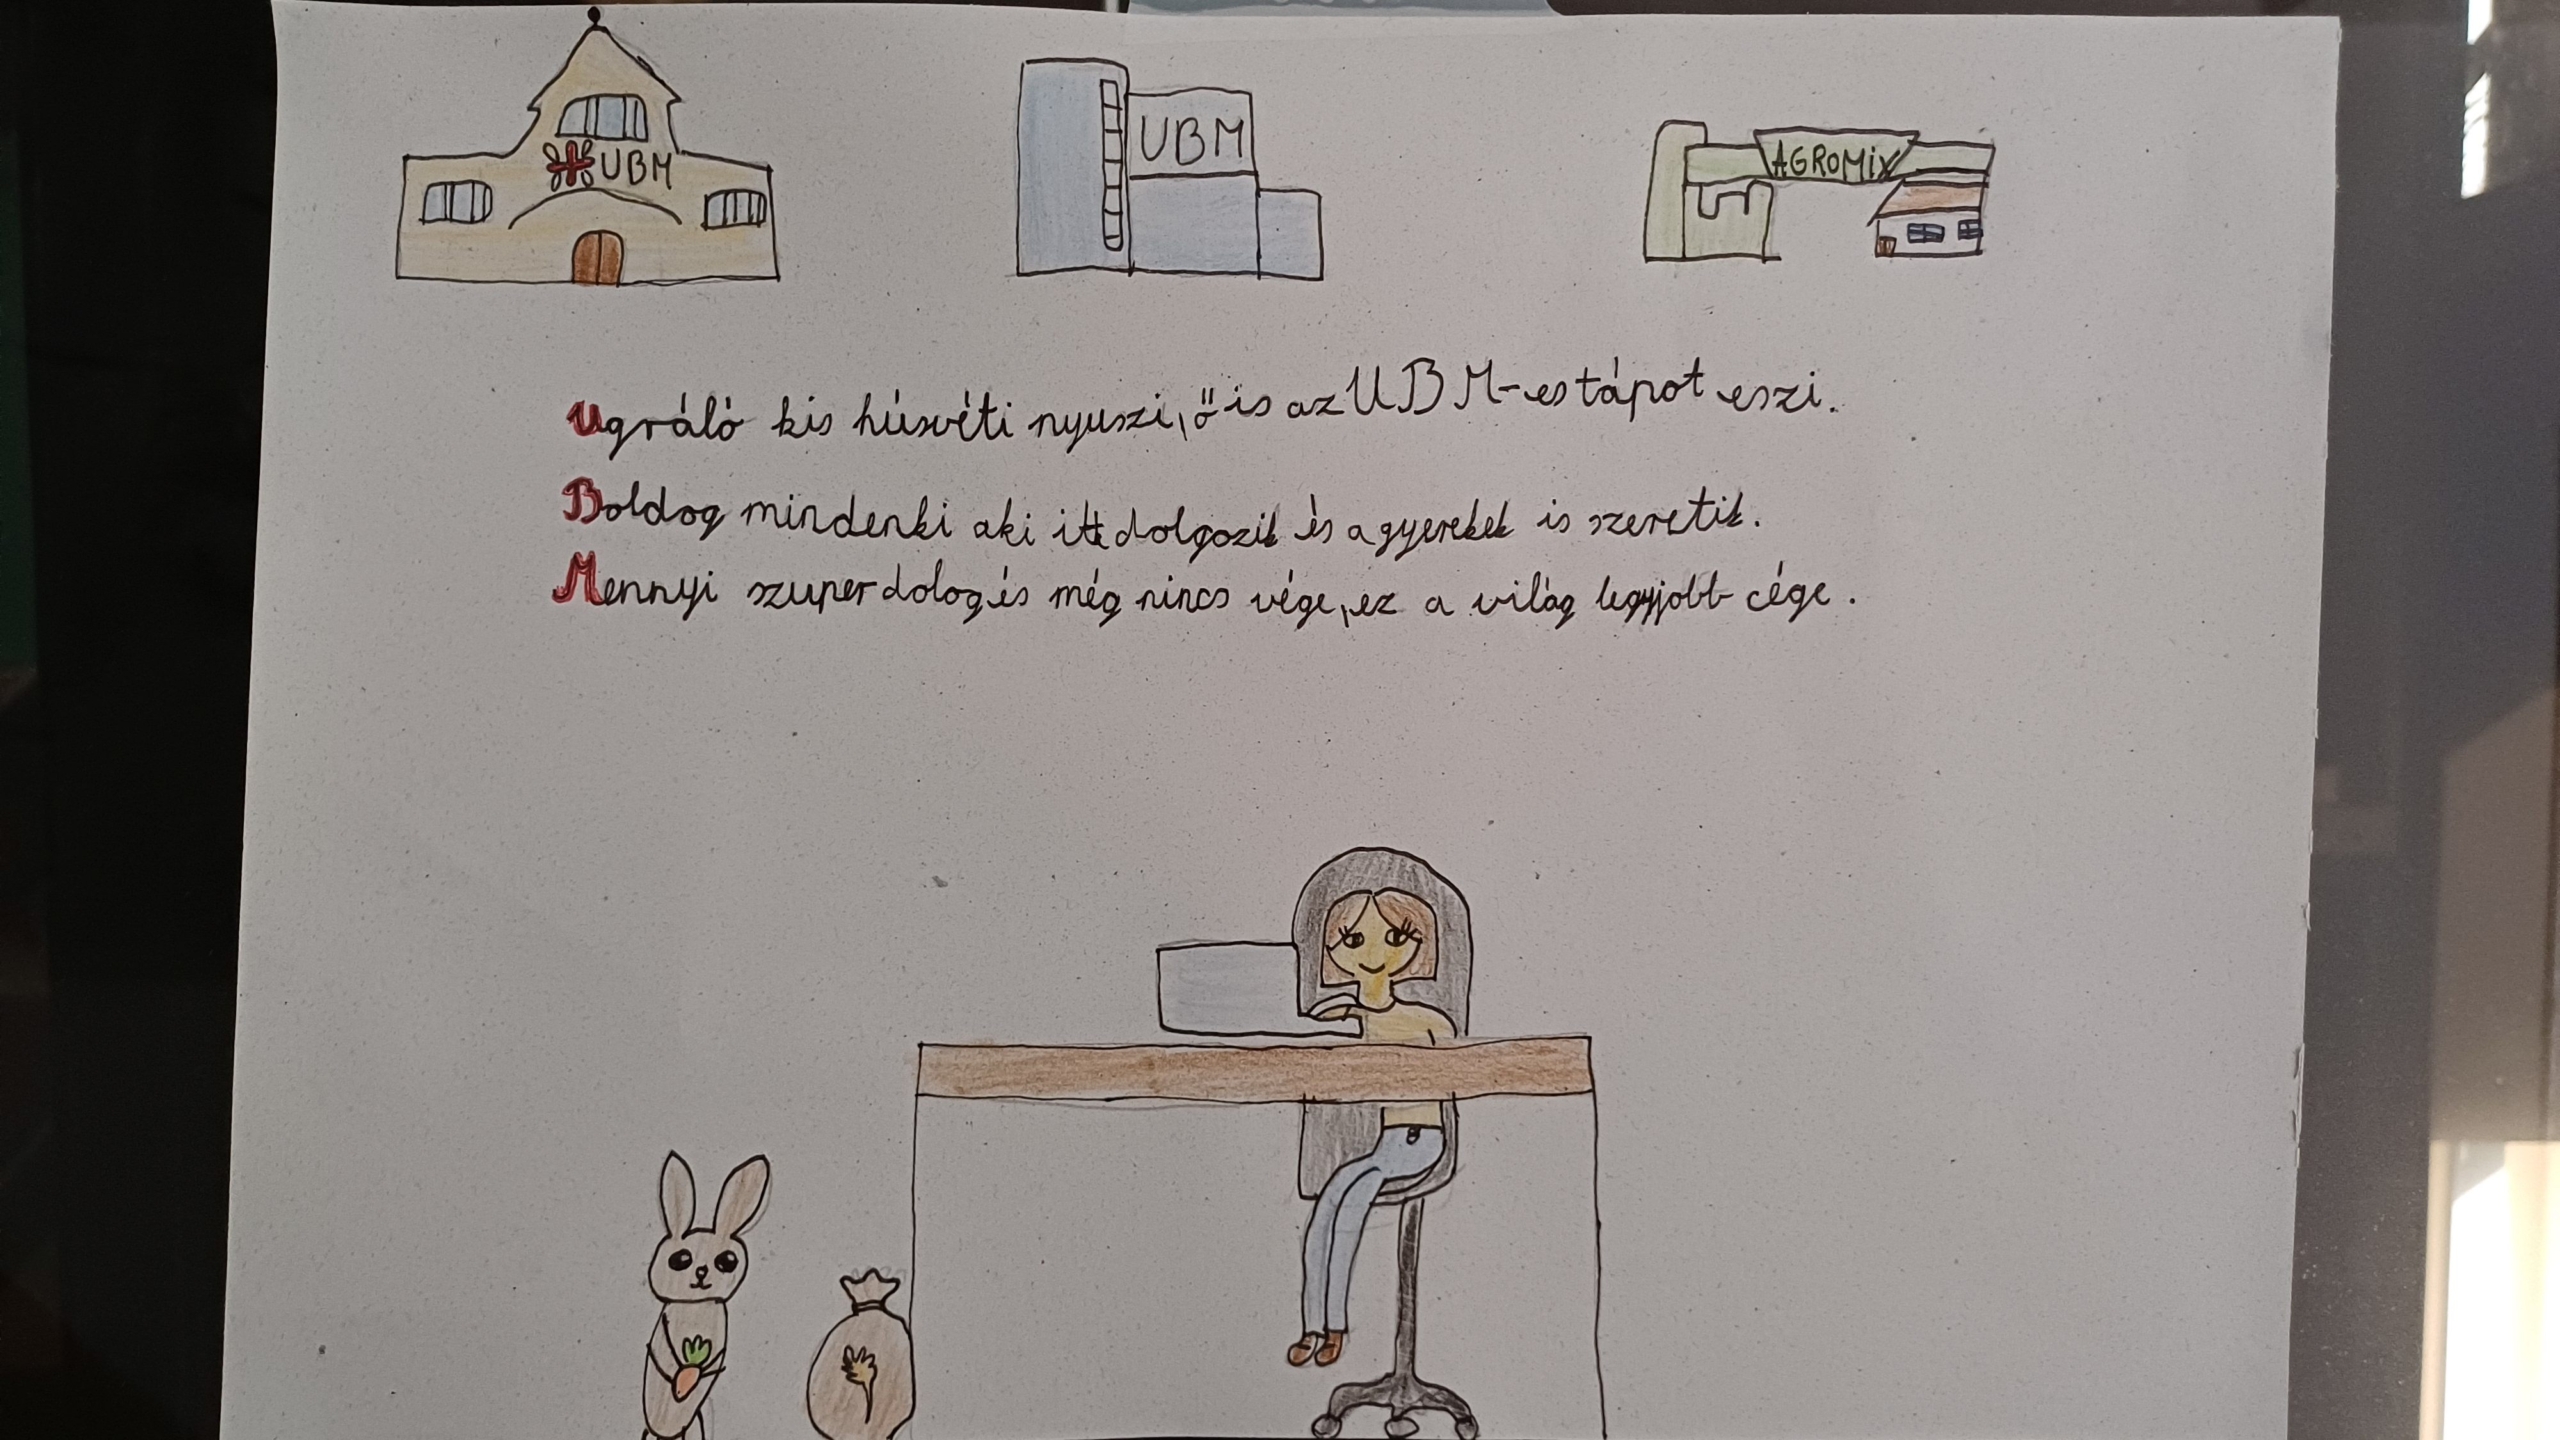 UBM
UBM
AGROMIX
Ugráló kis húsvéti nyuszi, ő is az UBM-es tápot eszi.
Boldog mindenki aki itt dolgozik és a gyerekek is szeretik.
Mennyi szuper dolog és még nincs vége, ez a világ legjobb cége.